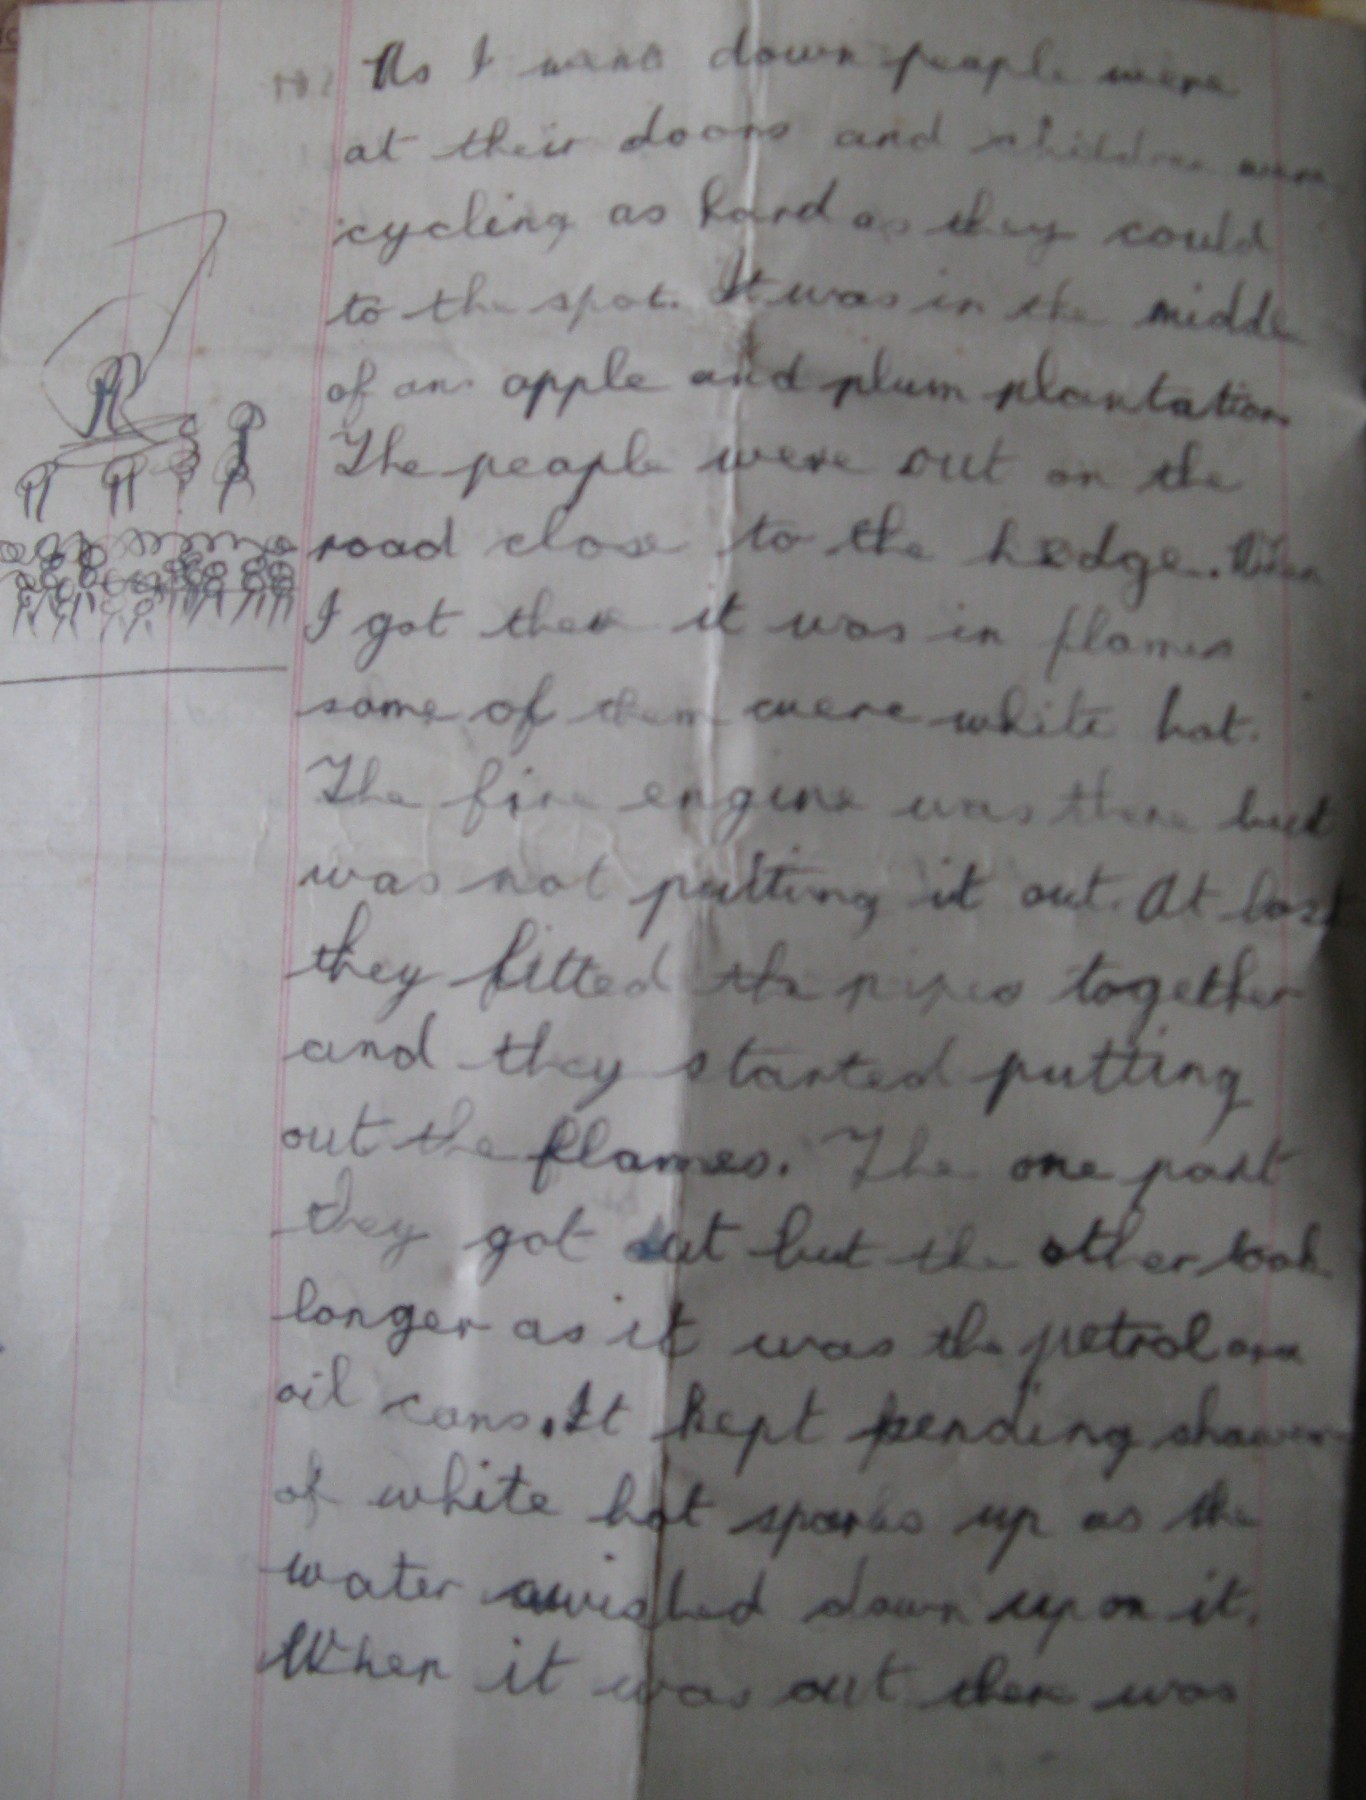 As I went down people were
at their doors and children were
cycling as hard as they could
to the spot. It was in the middle
of an apple and plum plantation
The people were out on the
road close to the hedge. When
I got there it was in flames
some of them were white hot.
The fire engine was there but
was not putting it out. At last
they fitted the pipes together
and they started putting
out the flames. The one part
they got out but the other took
longer as it was the petrol and
oil cans. It kept sending shower
of white hot sparks up as the
water swished down up on it.
When it was out there was